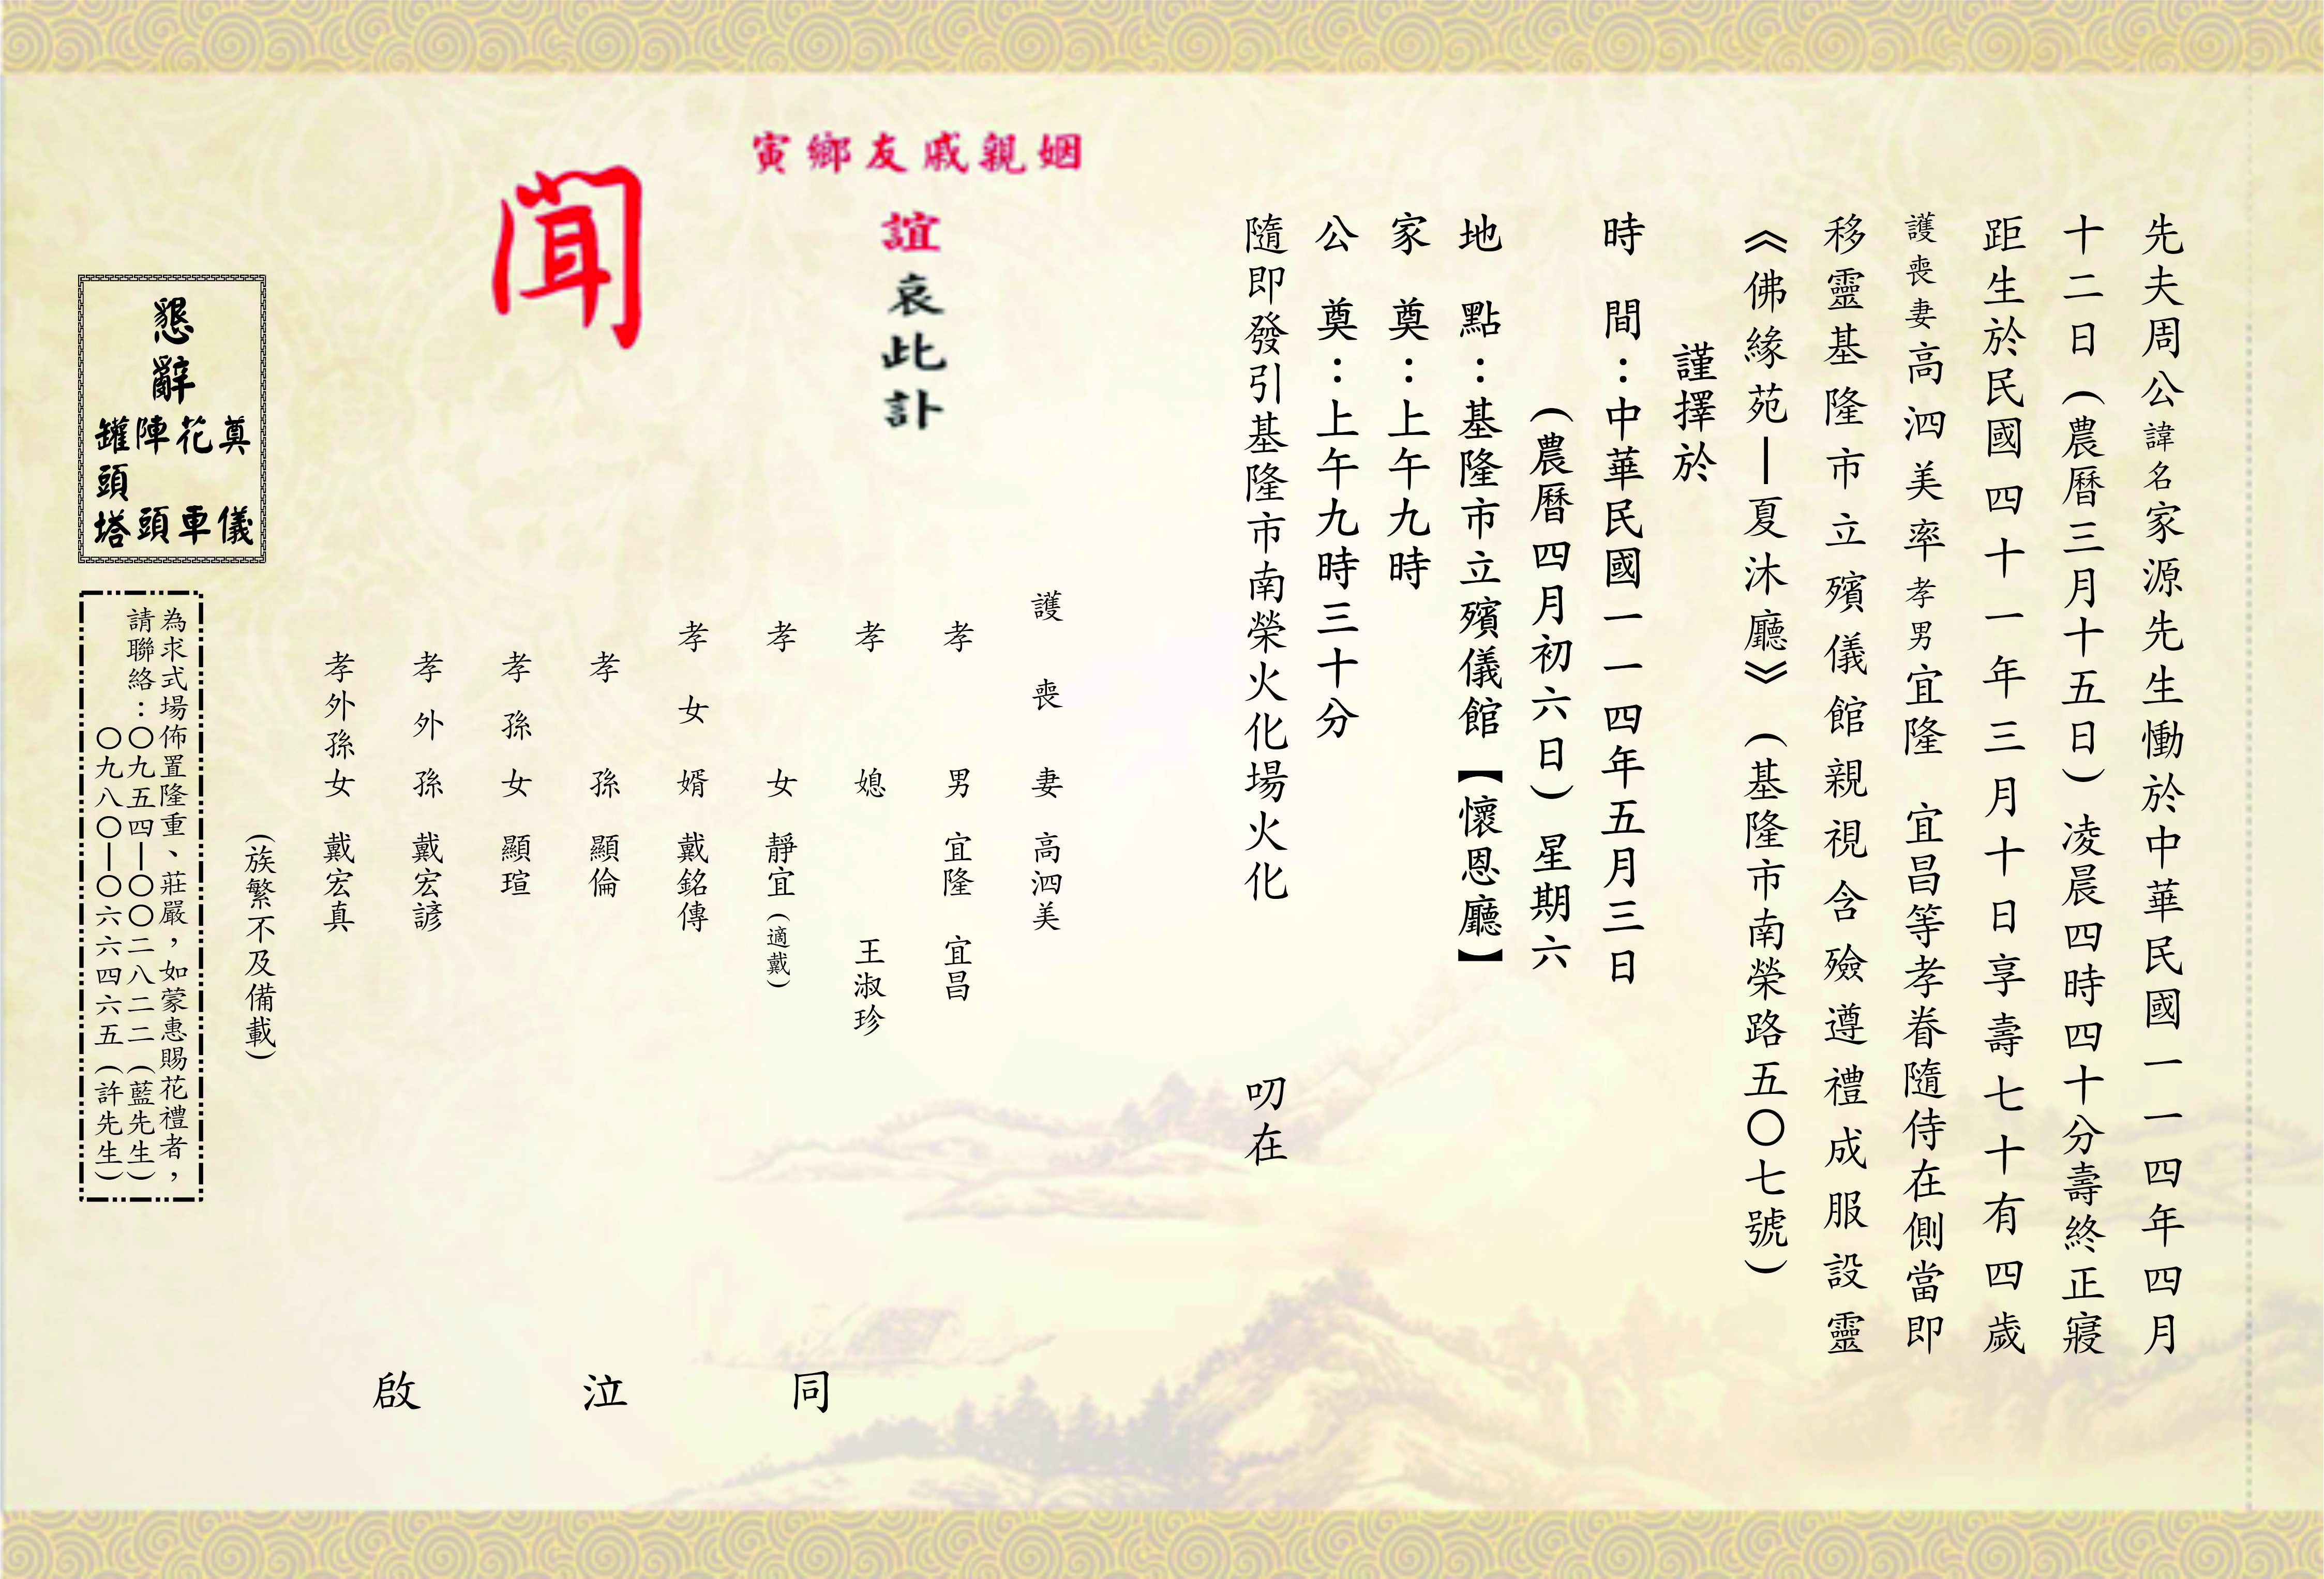 先夫周公諱名家源先生慟於中華民國一一四年四月
十二日（農曆三月十五日）凌晨四時四十分壽終正寢
距生於民國四十一年三月十日享壽七十有四歲
護喪妻高泗美率孝男宜隆　宜昌等孝眷隨侍在側當即
移靈基隆市立殯儀館親視含殮遵禮成服設靈
《佛緣苑—夏沐廳》（基隆市南榮路五〇七號）
謹擇於
時　間：中華民國一一四年五月三日
（農曆四月初六日）星期六
地　點：基隆市立殯儀館【懷恩廳】
家　奠：上午九時
公　奠：上午九時三十分
隨即發引基隆市南榮火化場火化　叨在
姻親戚友鄉寅
誼哀此訃
聞
護喪妻　高泗美
孝男　宜隆　宜昌
孝媳　王淑珍
孝女　靜宜（適戴）
孝女婿　戴銘傳
孝孫　顯倫
孝孫女　顯瑄
孝外孫　戴宏諺
孝外孫女　戴宏真
（族繁不及備載）
同泣啟
懇辭
奠儀
花車
陣頭
罐頭塔
為求式場佈置隆重、莊嚴，如蒙惠賜花禮者，
請聯絡：〇九五四—〇〇二八二二（藍先生）
〇九八〇—〇六六四六五（許先生）